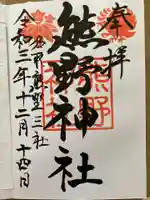 奉拝
熊野神社
熊野
神社
三社
令和三年十二月十四日